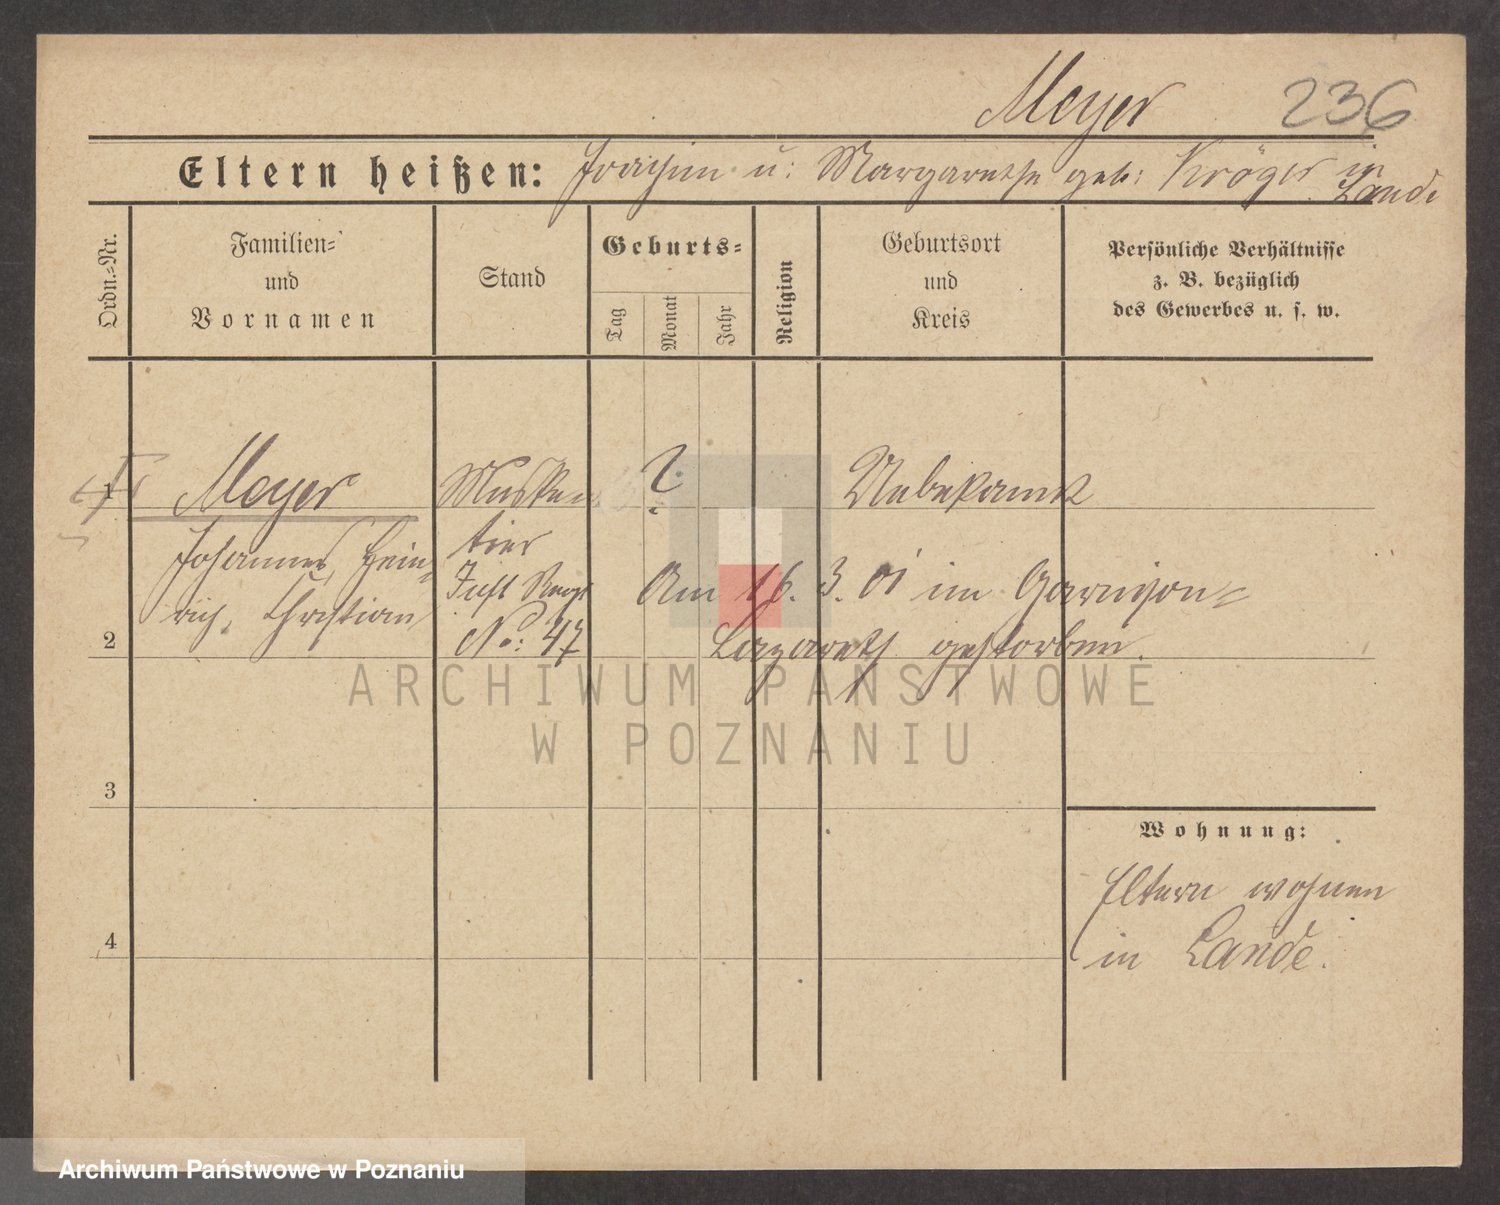 Meyer 236
Eltern heißen: Joachim u: Margarethe geb: Kröger in
Lande
Ordn.=Nr.
Familien=
und
Vornamen
Stand
Geburts=
Tag
Monat
Jahr
Religion
Geburtsort
und
Kreis
Persönliche Verhältnisse
z. B. bezüglich
des Gewerbes u. s. w.
1 Meyer Muske ? Unbekannt
Johannes, Hein=
rich, Christian
tier
Inft Regt
No: 47
Am 16. 3. 01 im Garnison=
Lazareth gestorben.
2
3
4
Wohnung:
Eltern wohnen
in Lande.
ARCHIWUM PAŃSTWOWE
W POZNANIU
Archiwum Państwowe w Poznaniu